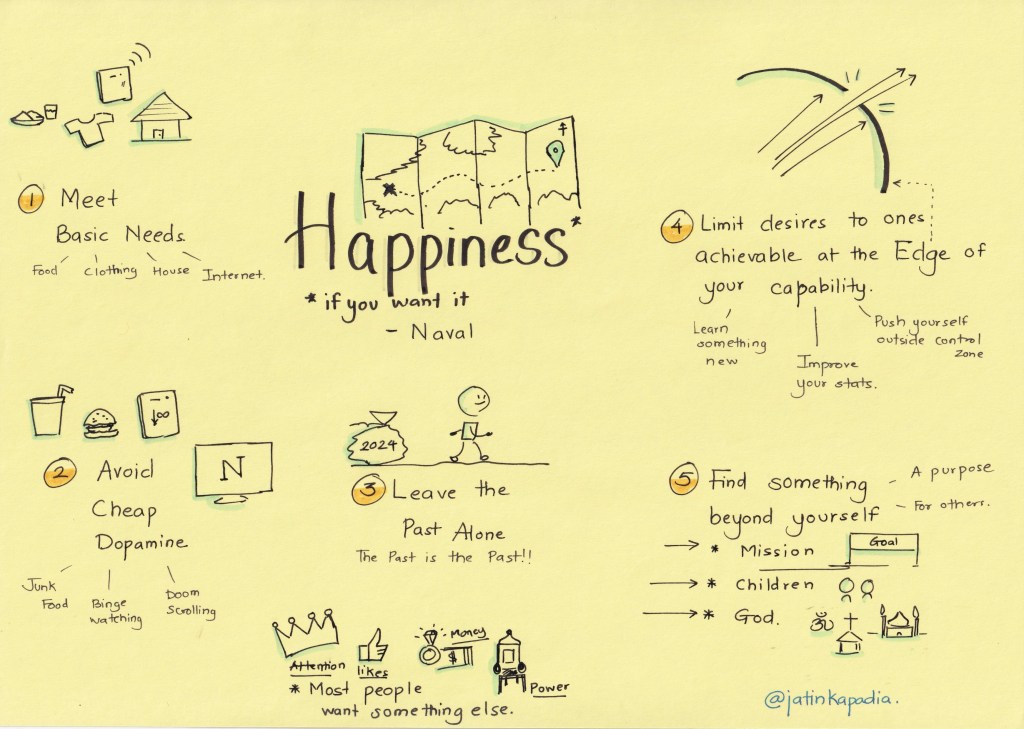 Happiness*
* if you want it
- Naval
1 Meet
Basic Needs
Food Clothing House Internet.
2 Avoid
Cheap
Dopamine
N
Junk
Food
Binge
watching
Doom
Scrolling
2024
3 Leave the
Past Alone
The Past is the Past!!
4 Limit desires to ones
achievable at the Edge of
your capability.
Learn
something
new
Improve
your stats.
Push yourself
outside control
zone
5 Find something
beyond yourself
- A purpose
- For others.
* Mission
Goal
* Children
* God.
ॐ
Attention
likes
Money
$
Power
* Most people
want something else.
@jatinkapadia.